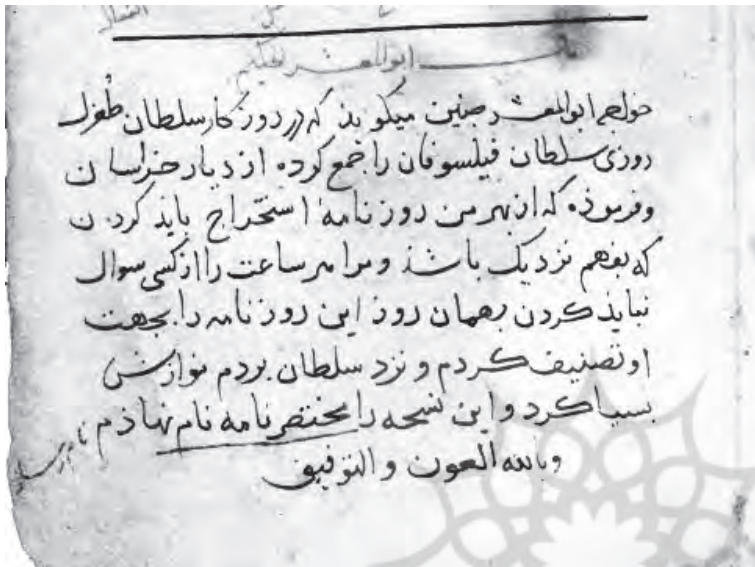 ابوالمعشر میگوید
خواجه ابوالمعشر چنین میکوید که در روزکار سلطان طُغرل
روزی سلطان فیلسوفان را جمع کرده از دیار خراسان
و فرموذه که از بهر من روزنامهٔ استخراج بایذ کردن
که بفهم نزدیک باشذ و مرا هر ساعت را از کسی سوال
نبایذ کردن بهمان روز این روزنامه را بجهت
او تصنیف کردم و نزد سلطان بردم نوازش
بسیا کرد و این نسخه را مختصرنامه نام نهاذم
وبالله العون والتوفیق